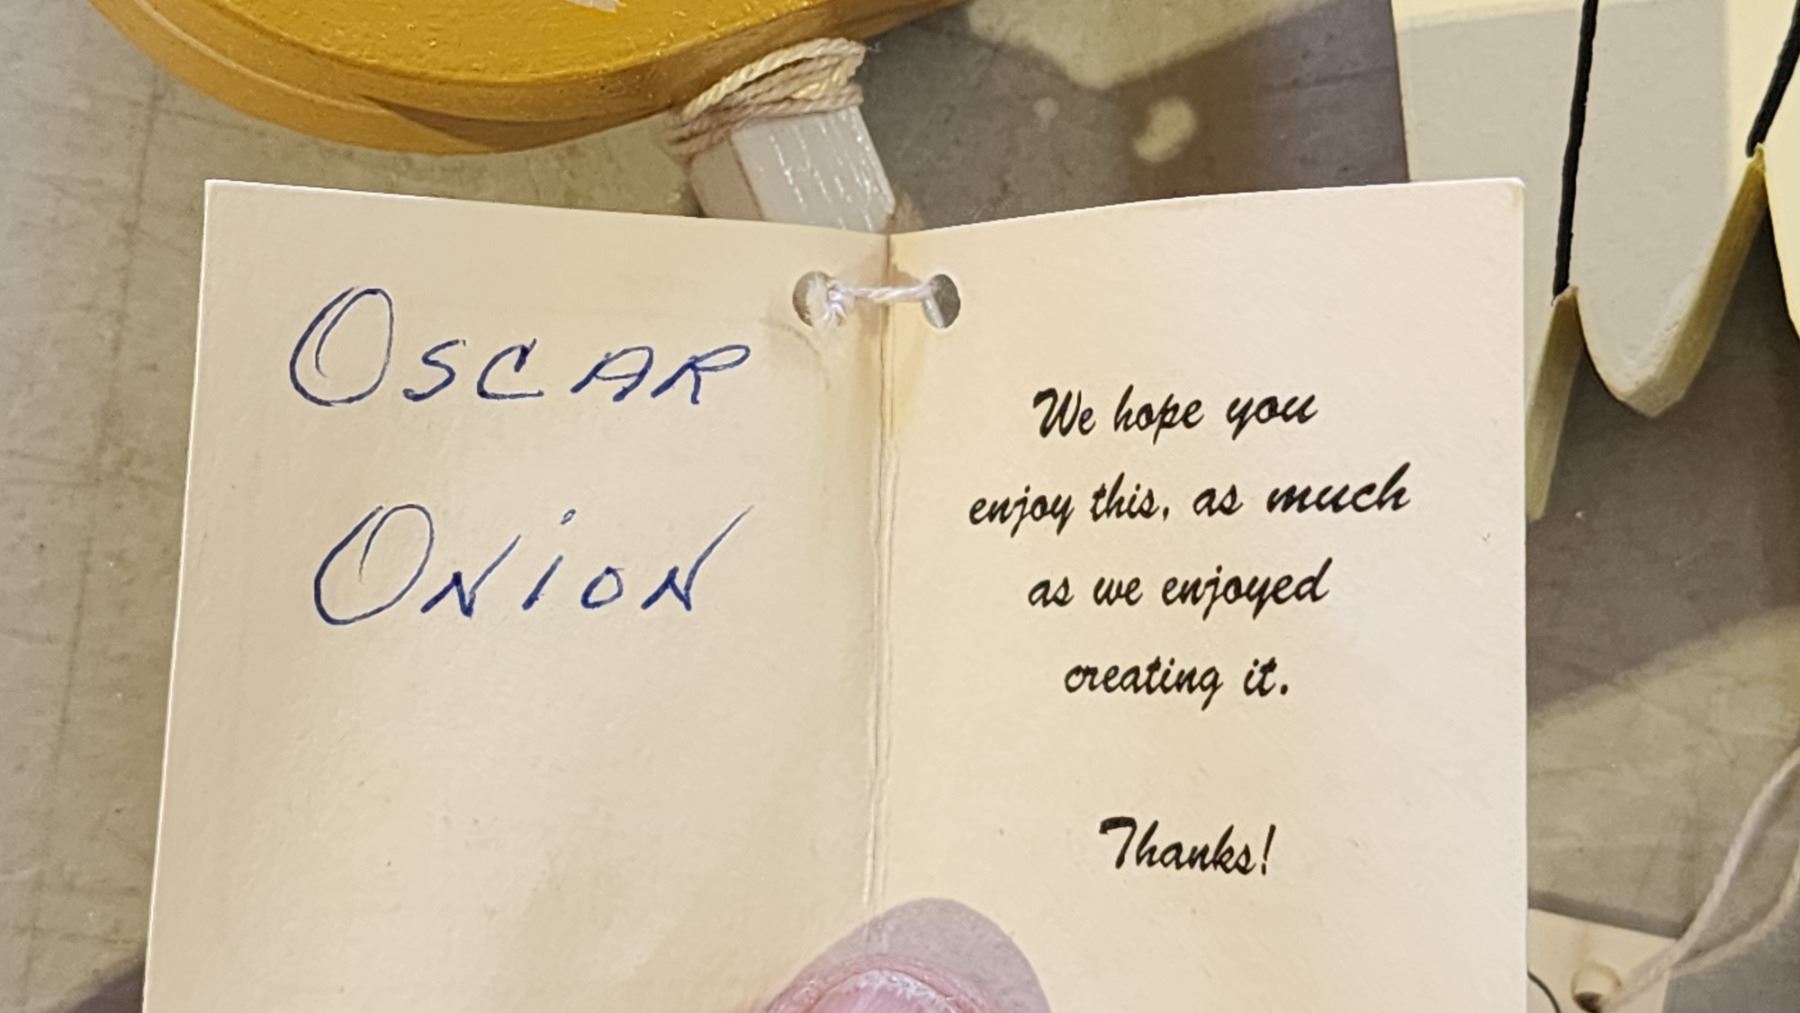 Oscar
Onion
We hope you
enjoy this, as much
as we enjoyed
creating it.
Thanks!